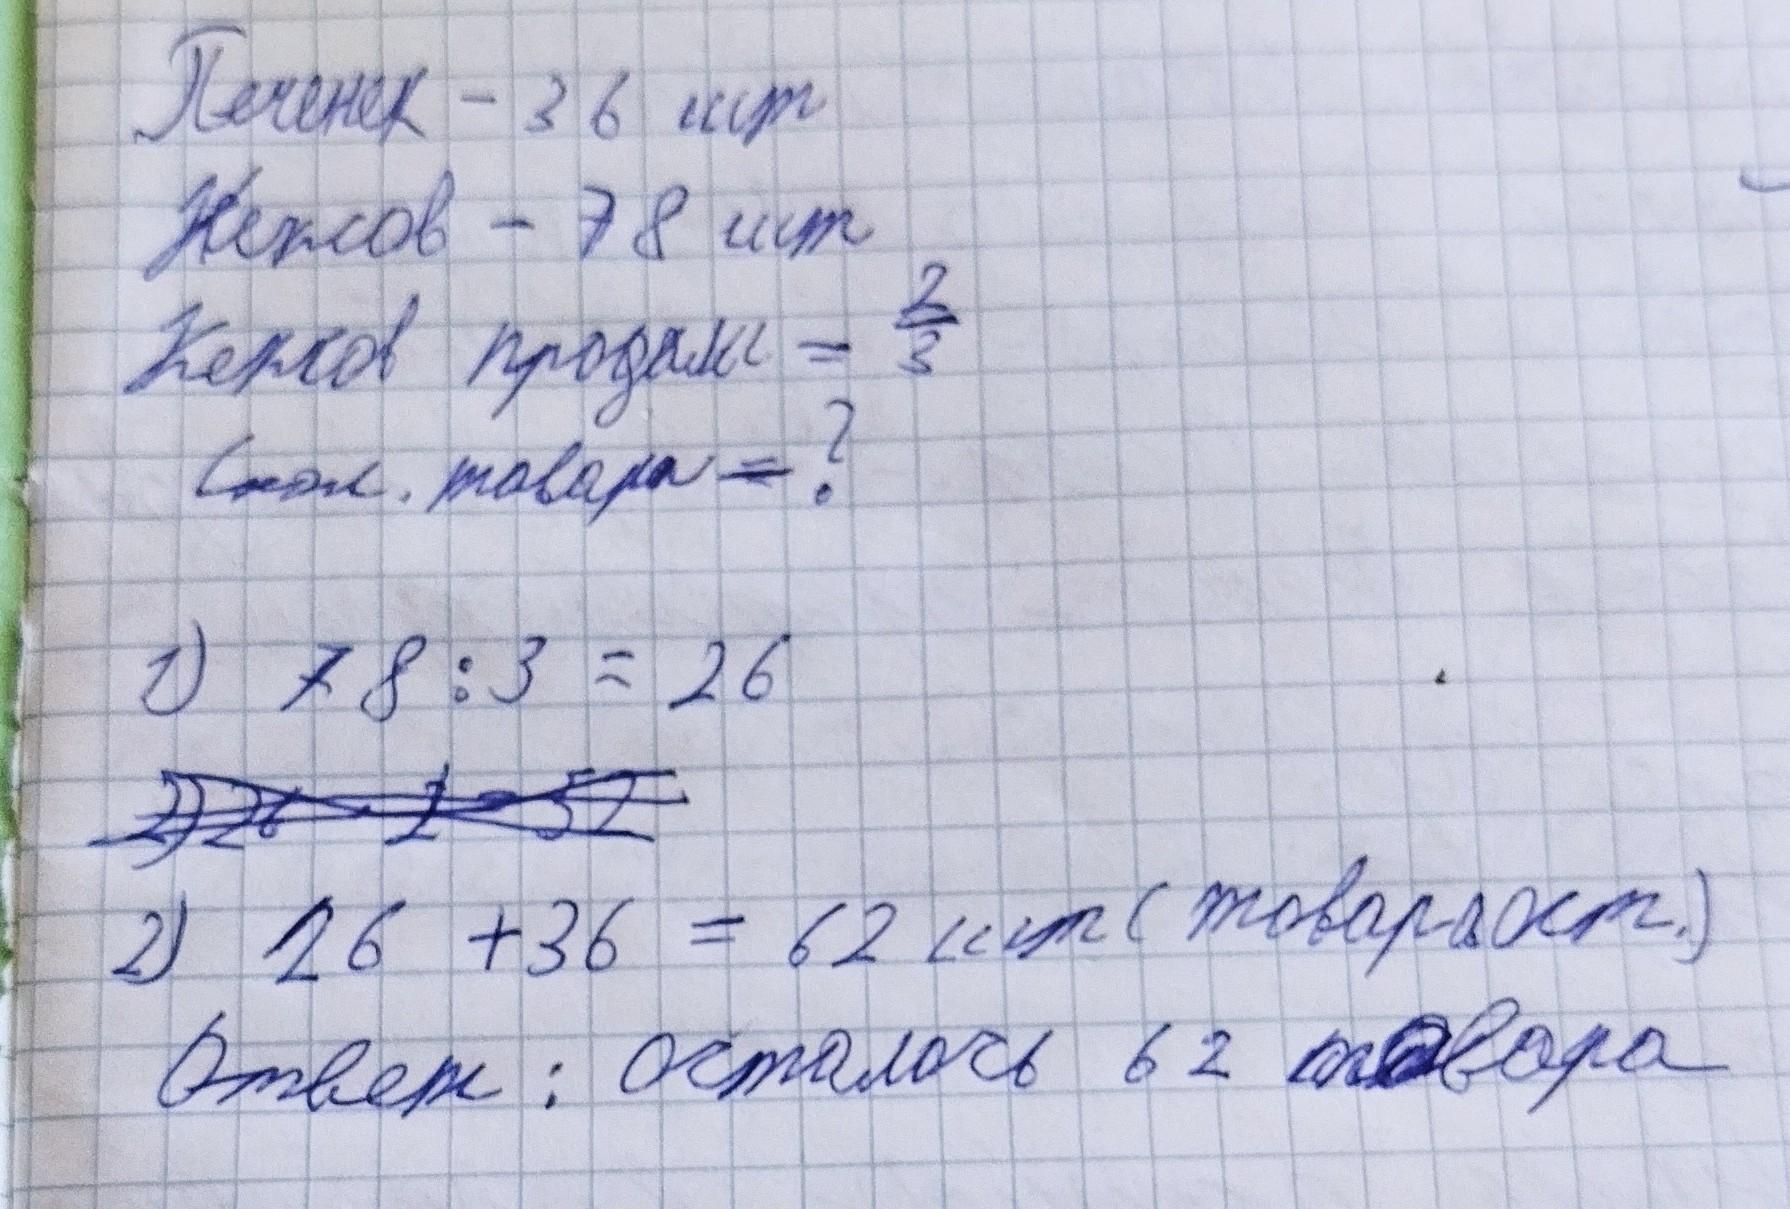 Печенек - 36 шт
Кексов - 78 шт
Кексов продали = 2/3
Скол. товара = ?
1) 78 : 3 = 26
2) 26 · 2 = 52
2) 26 + 36 = 62 шт (товара ост.)
Ответ : осталось 62 товара